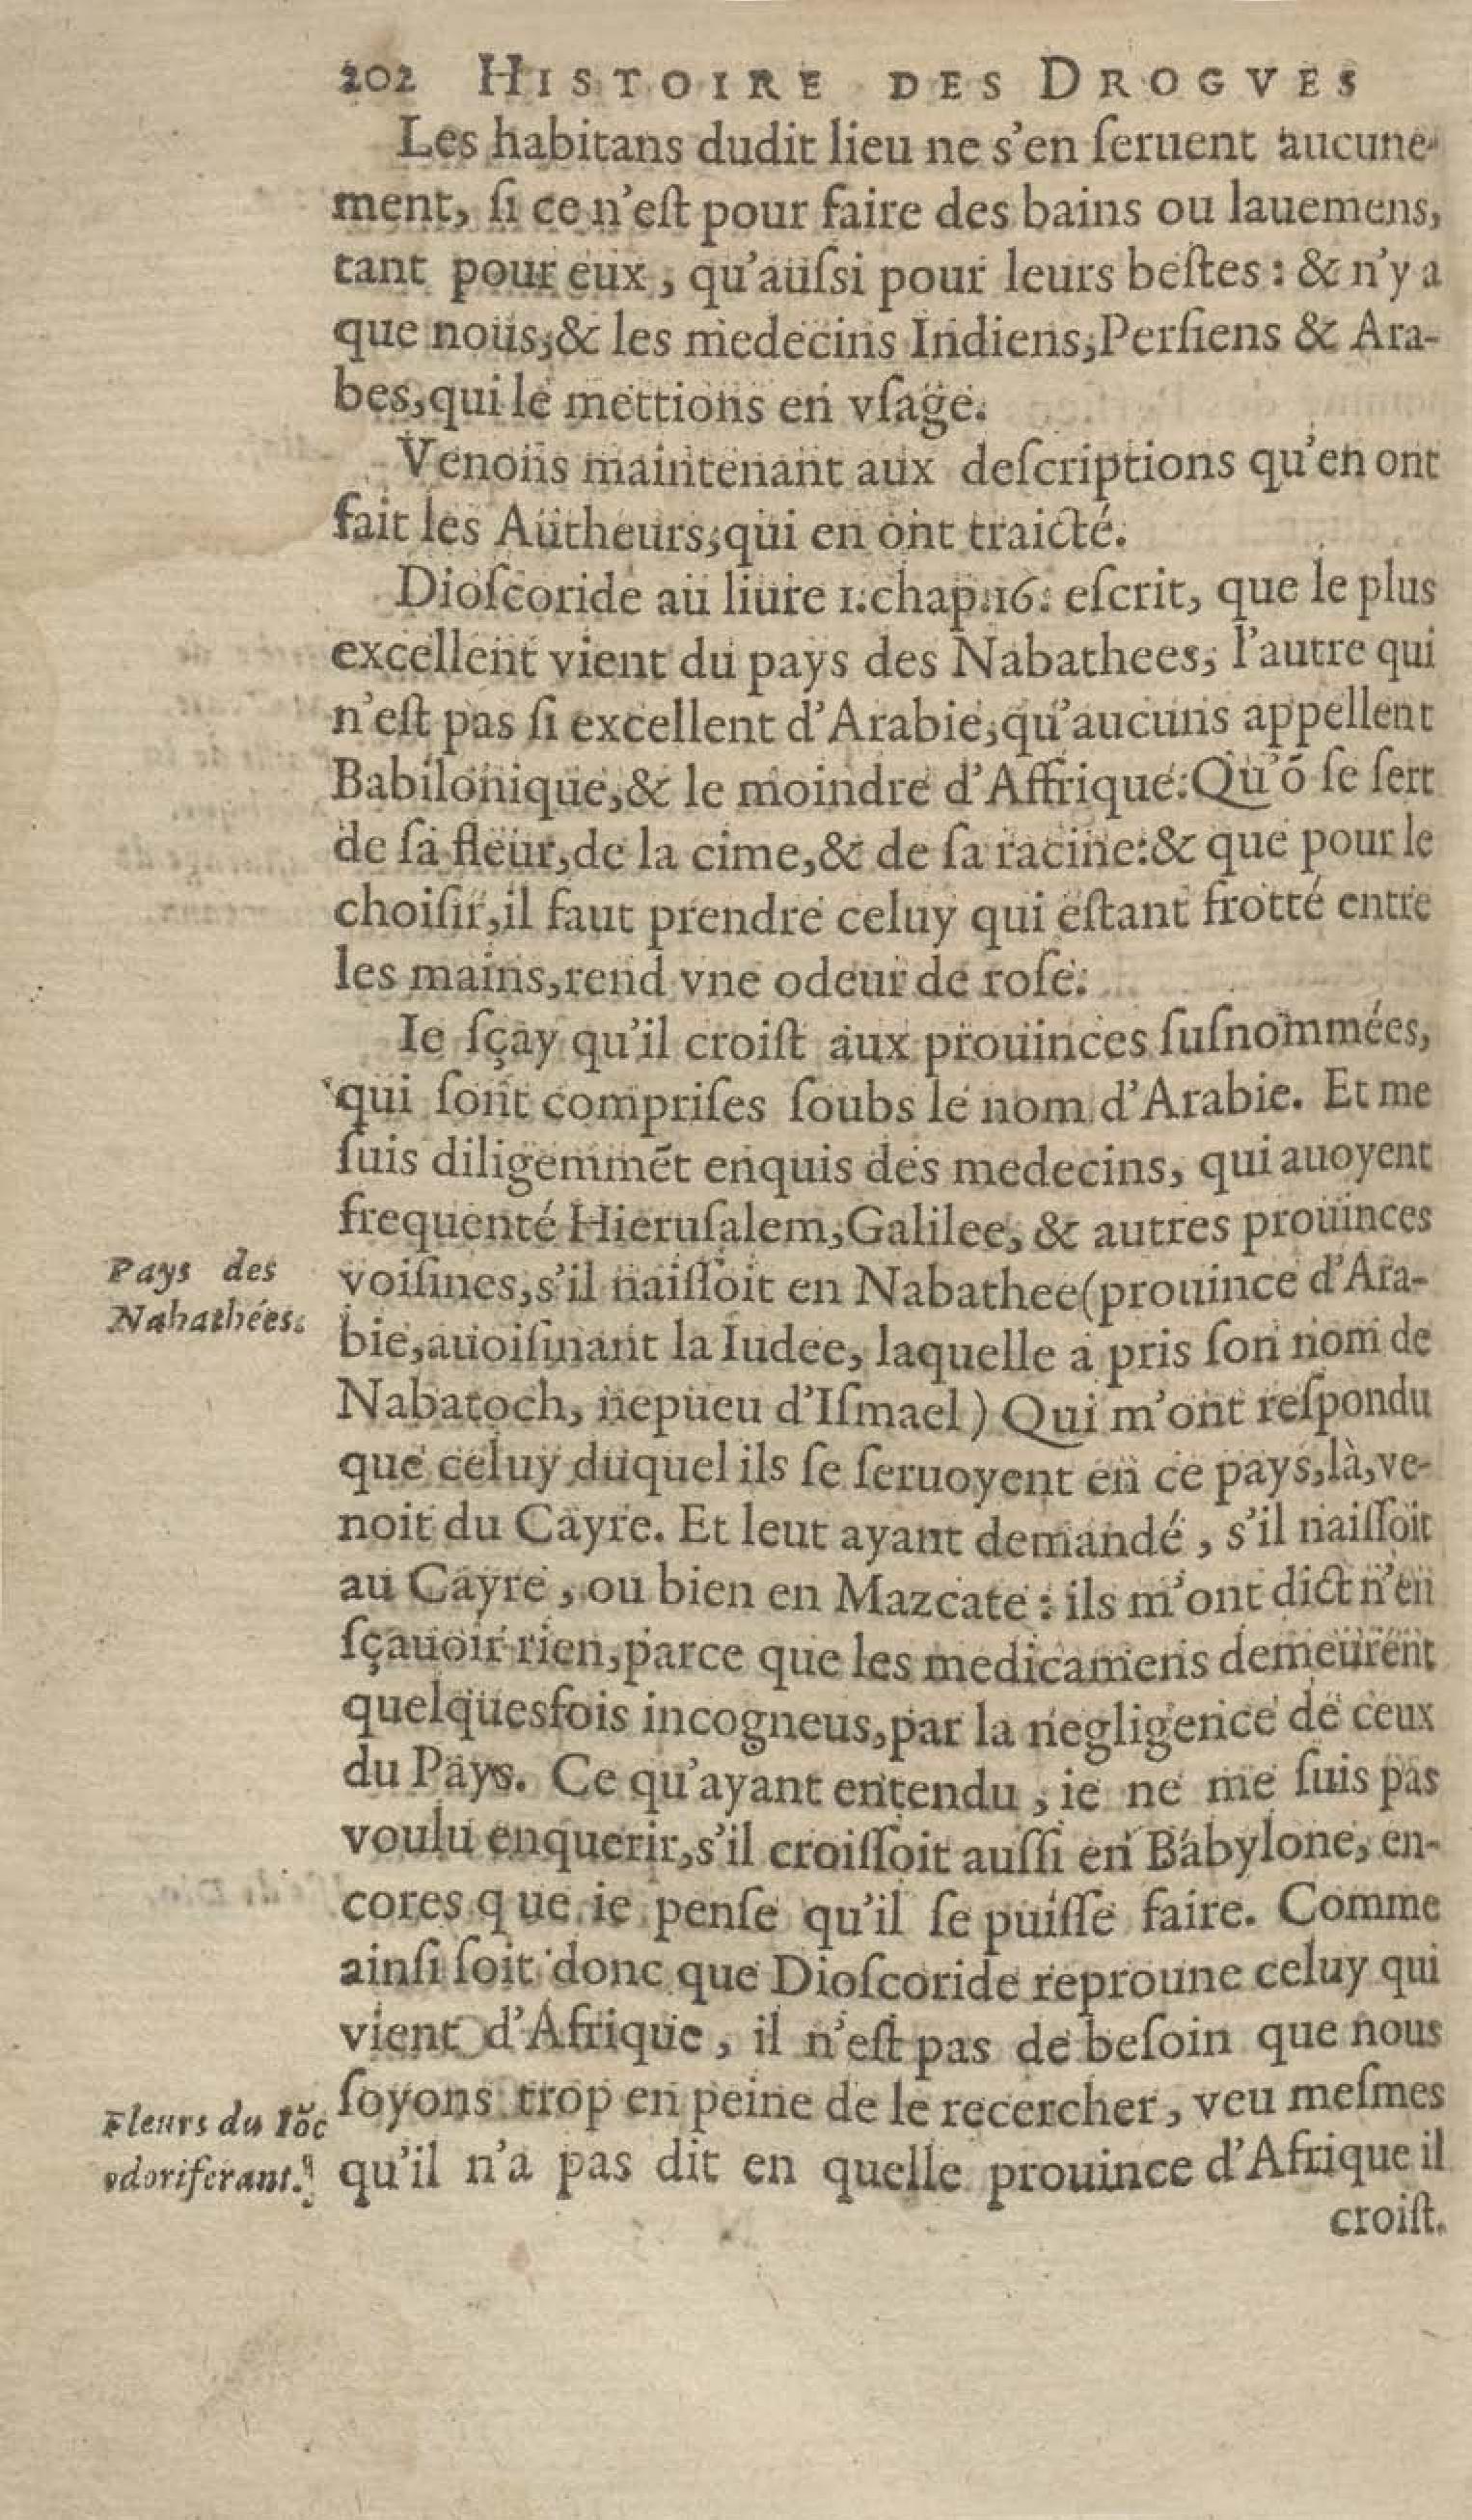 202 HISTOIRE DES DROGVES
Les habitans dudit lieu ne s'en ſeruent aucune-
ment, ſi ce n'eſt pour faire des bains ou lauemens,
tant pour eux, qu'auſsi pour leurs beſtes: & n'y a
que nous, & les medecins Indiens, Perſiens & Ara-
bes, qui le mettions en vſage.
Venons maintenant aux deſcriptions qu'en ont
fait les Autheurs, qui en ont traicté.
Dioſcoride au liure 1. chap. 16. eſcrit, que le plus
excellent vient du pays des Nabathees, l'autre qui
n'eſt pas ſi excellent d'Arabie, qu'aucuns appellent
Babilonique, & le moindre d'Affrique: Qu'õ ſe ſert
de ſa fleur, de la cime, & de ſa racine: & que pour le
choiſir, il faut prendre celuy qui eſtant frotté entre
les mains, rend vne odeur de roſe.
Ie ſçay qu'il croiſt aux prouinces ſuſnommées,
qui ſont compriſes ſoubs le nom d'Arabie. Et me
ſuis diligemmẽt enquis des medecins, qui auoyent
frequenté Hieruſalem, Galilee, & autres prouinces
Pays des
Nabathées.
voiſines, s'il naiſſoit en Nabathee (prouince d'Ara-
bie, auoiſinant la Iudee, laquelle a pris ſon nom de
Nabatoch, nepueu d'Iſmael) Qui m'ont reſpondu
que celuy duquel ils ſe ſeruoyent en ce pays, là, ve-
noit du Cayre. Et leut ayant demandé, s'il naiſſoit
au Cayre, ou bien en Mazcate: ils m'ont dict n'en
ſçauoir rien, parce que les medicamens demeurent
quelquesfois incogneus, par la negligence de ceux
du Pays. Ce qu'ayant entendu, ie ne me ſuis pas
voulu enquerir, s'il croiſſoit auſſi en Babylone, en-
cores que ie penſe qu'il ſe puiſſe faire. Comme
ainſi ſoit donc que Dioſcoride reproune celuy qui
vient d'Afrique, il n'eſt pas de beſoin que nous
Fleurs du Iõc
odoriferant.
ſoyons trop en peine de le recercher, veu meſmes
qu'il n'a pas dit en quelle prouince d'Afrique il
croiſt.